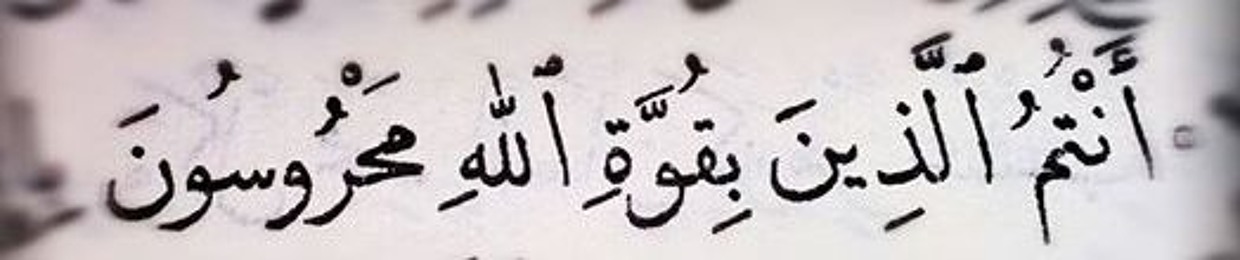 أَنْتُمُ ٱلَّذِينَ بِقُوَّةِ ٱللهِ مَحْرُوسُونَ